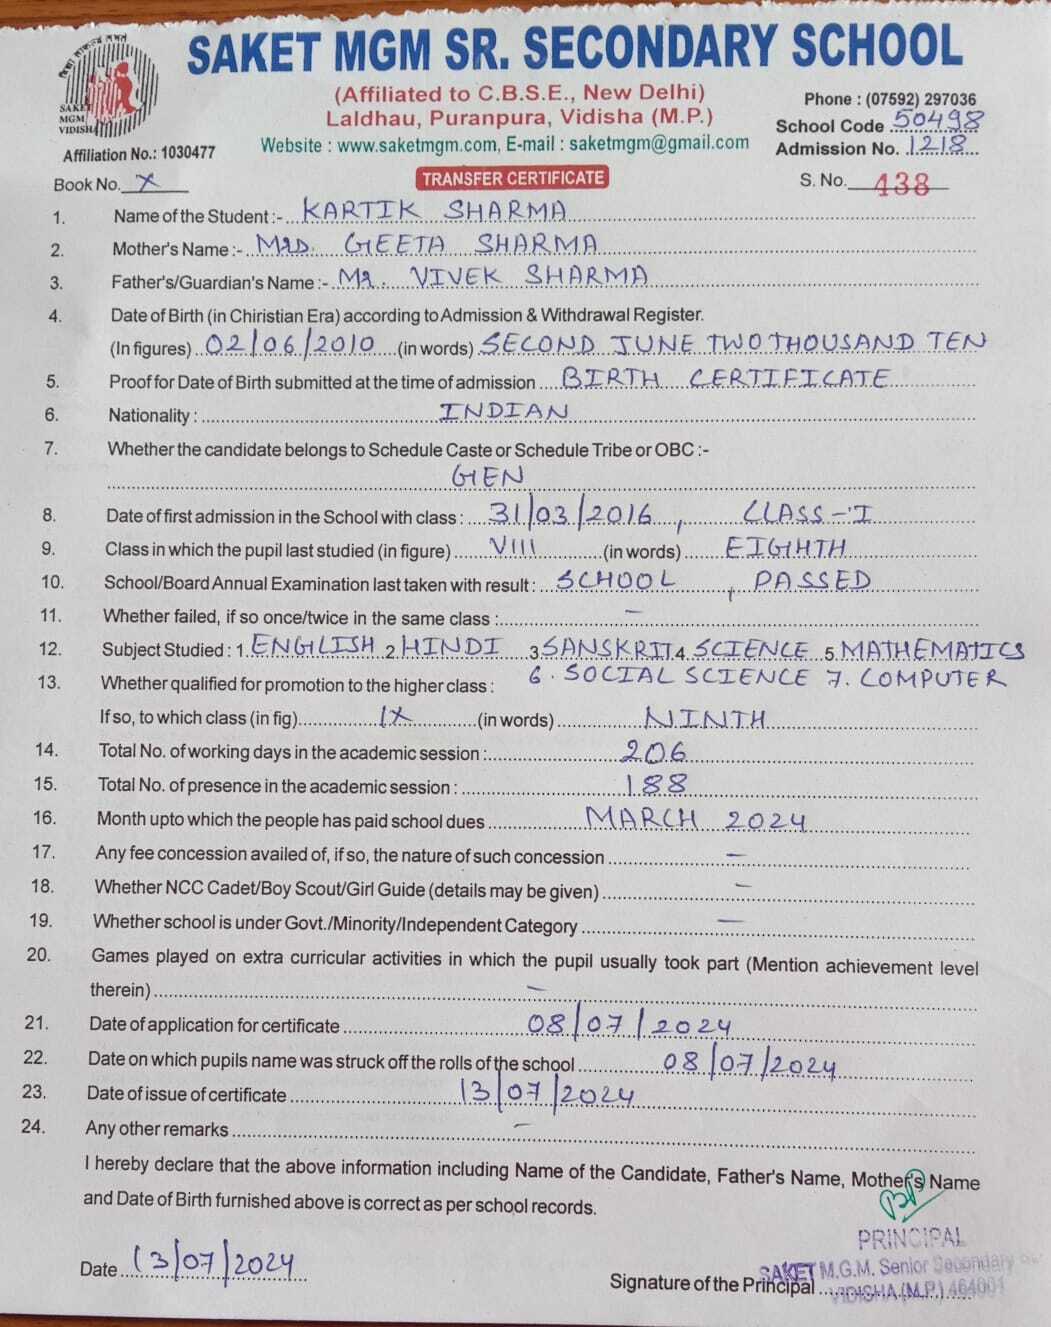 SAKET MGM SR. SECONDARY SCHOOL
(Affiliated to C.B.S.E., New Delhi)
Laldhau, Puranpura, Vidisha (M.P.)
Website : www.saketmgm.com, E-mail : saketmgm@gmail.com
SAKET
MGM
VIDISHA
Phone : (07592) 297036
School Code 50498
Admission No. 1218
Affiliation No.: 1030477
Book No. X
TRANSFER CERTIFICATE
S. No. 438
1. Name of the Student :- KARTIK SHARMA
2. Mother's Name :- Mrs. GEETA SHARMA
3. Father's/Guardian's Name :- Mr. VIVEK SHARMA
4. Date of Birth (in Chiristian Era) according to Admission & Withdrawal Register.
(In figures) 02/06/2010 (in words) SECOND JUNE TWO THOUSAND TEN
5. Proof for Date of Birth submitted at the time of admission BIRTH CERTIFICATE
6. Nationality : INDIAN
7. Whether the candidate belongs to Schedule Caste or Schedule Tribe or OBC :-
GEN
8. Date of first admission in the School with class : 31/03/2016, CLASS - I
9. Class in which the pupil last studied (in figure) VIII (in words) EIGHTH
10. School/Board Annual Examination last taken with result : SCHOOL, PASSED
11. Whether failed, if so once/twice in the same class : –
12. Subject Studied : 1. ENGLISH 2 HINDI 3. SANSKRIT 4. SCIENCE 5. MATHEMATICS
6. SOCIAL SCIENCE 7. COMPUTER
13. Whether qualified for promotion to the higher class :
If so, to which class (in fig) IX (in words) NINTH
14. Total No. of working days in the academic session : 206
15. Total No. of presence in the academic session : 188
16. Month upto which the people has paid school dues MARCH 2024
17. Any fee concession availed of, if so, the nature of such concession –
18. Whether NCC Cadet/Boy Scout/Girl Guide (details may be given) –
19. Whether school is under Govt./Minority/Independent Category –
20. Games played on extra curricular activities in which the pupil usually took part (Mention achievement level
therein) –
21. Date of application for certificate 08/07/2024
22. Date on which pupils name was struck off the rolls of the school 08/07/2024
23. Date of issue of certificate 13/07/2024
24. Any other remarks –
I hereby declare that the above information including Name of the Candidate, Father's Name, Mother's Name
and Date of Birth furnished above is correct as per school records.
PRINCIPAL
SAKET M.G.M. Senior Secondary
VIDISHA (M.P.) 464001
Date 13/07/2024
Signature of the Principal